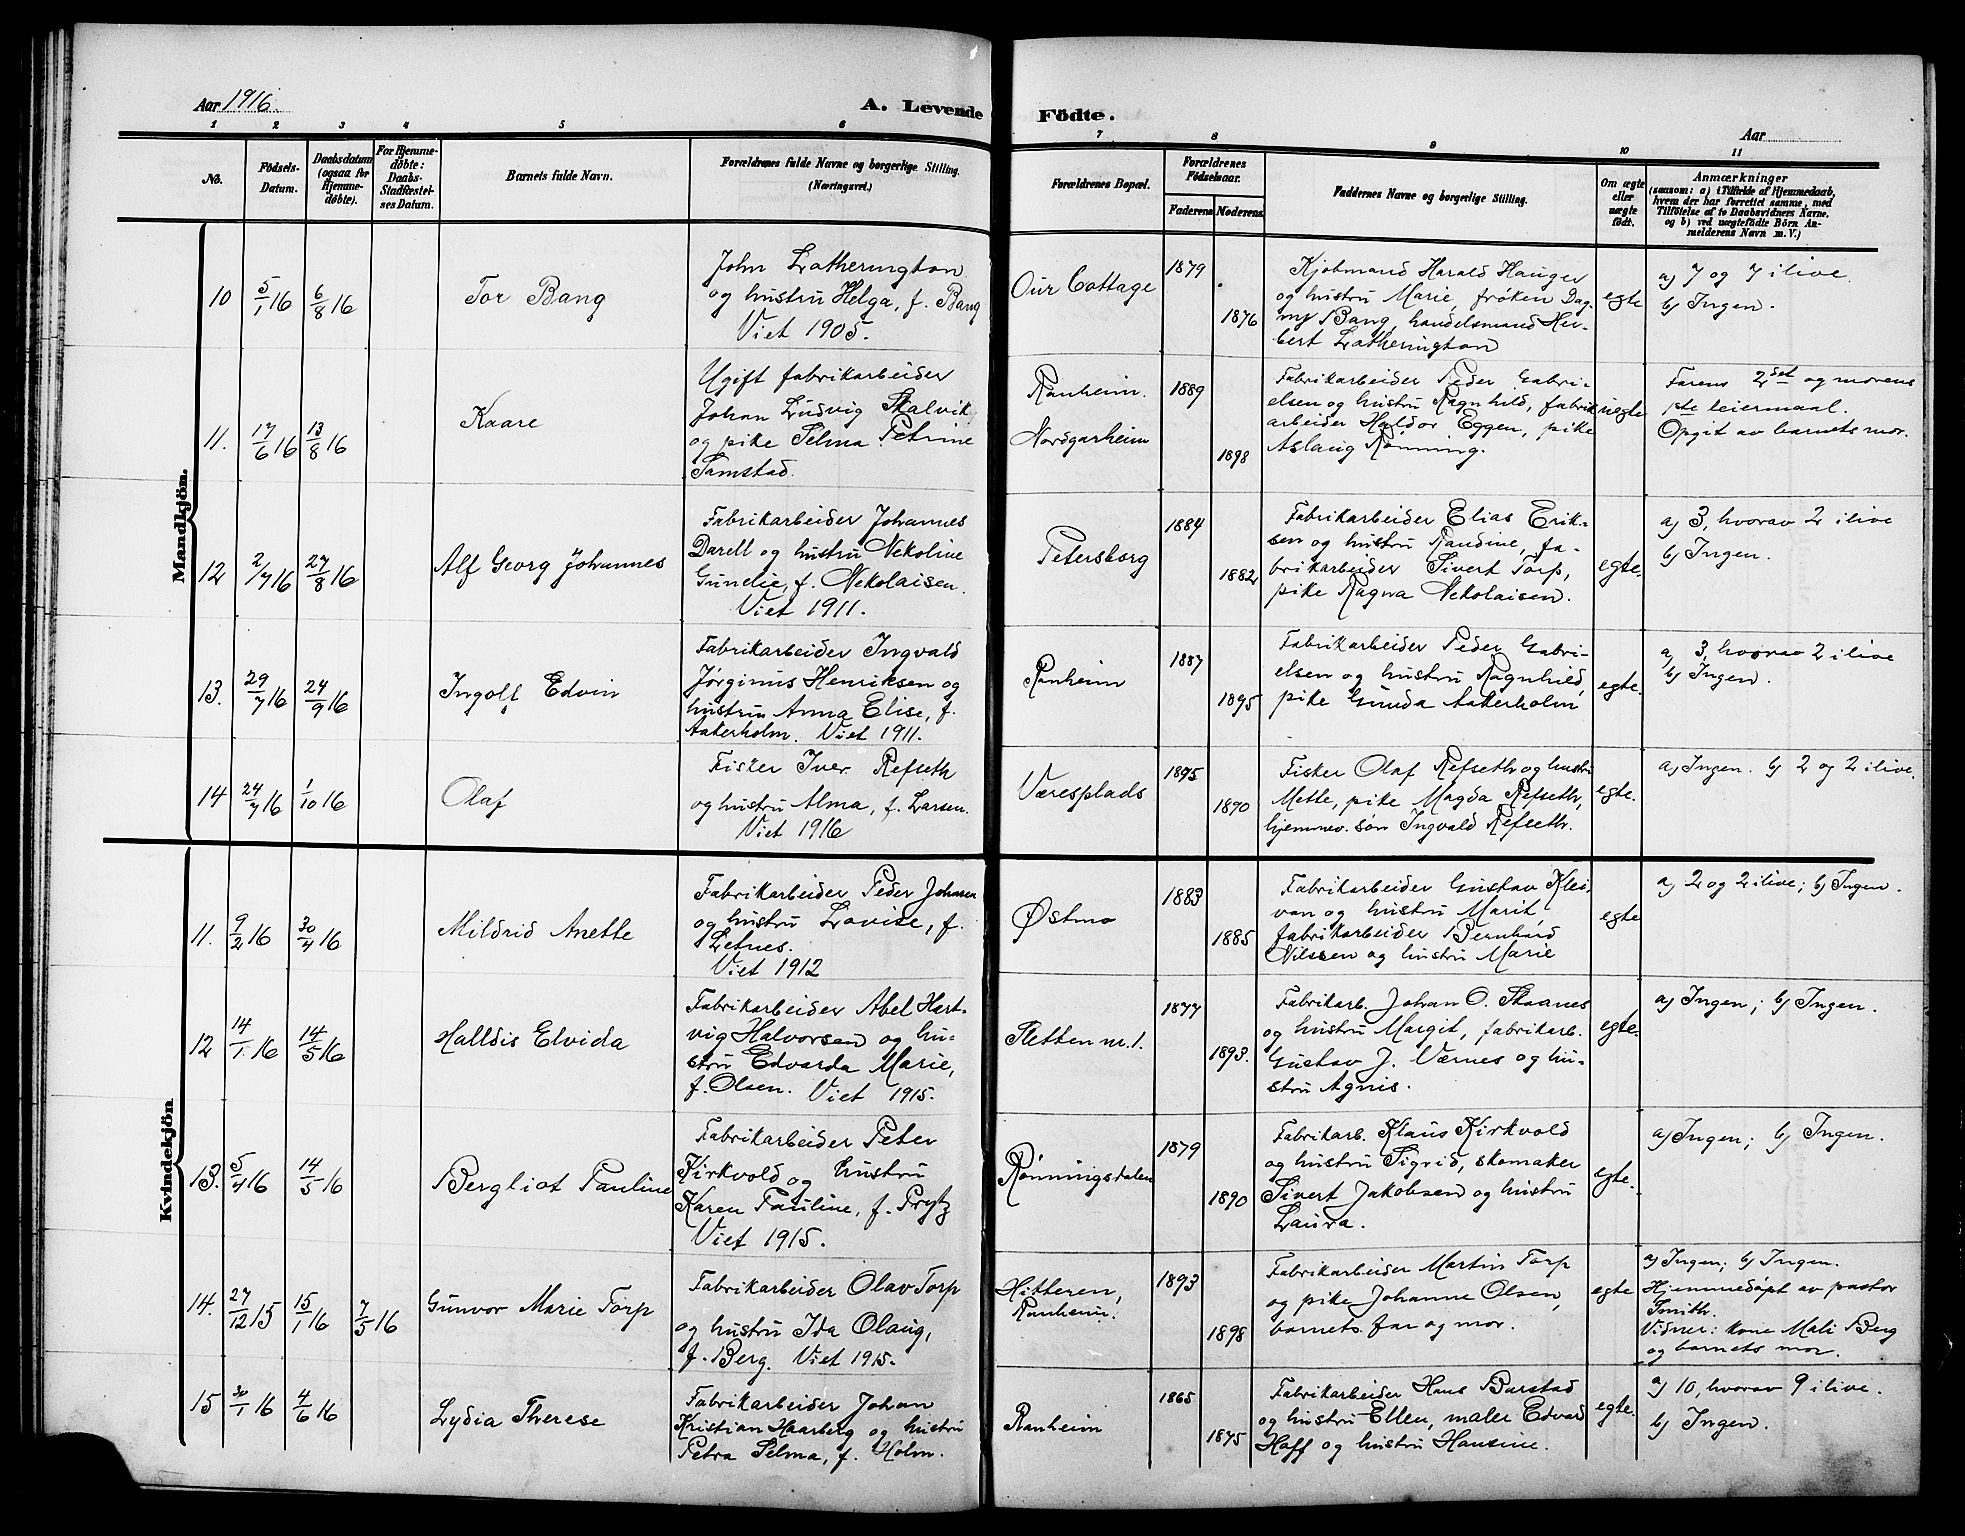 Aar 1916.
A. Levende Födte.
Aar
1 2 3 4 5 6 7 8 9 10 11
No.
Födsels-
Datum.
Daabsdatum
(ogsaa for
Hjemme-
døbte).
For Hjemme-
døbte:
Daabs-
Stadfæstel-
ses Datum.
Barnets fulde Navn.
Forældrenes fulde Navne og borgerlige Stilling.
(Næringsvei.)
Forældrenes Bopæl.
Forældrenes
Födselsaar.
Faderens Moderens
Faddernes Navne og borgerlige Stilling.
Om ægte
eller
uægte
født.
Anmærkninger
(saasom: a) i Tilfælde af Hjemmedaab,
hvem der har forrettet samme, med
Tilföielse af to Daabsvidners Navne.
og b) ved uægtefødte Börn An-
melderens Navn m. V.)
Mandkjön.
10 5/1 16 6/8 16
Tor Bang
John Latherington
og hustru Helga, f. Bang
Viet 1905.
Our Cottage
1879
1876
Kjøbmand Harald Hauger
og hustru Marie, frøken Dag-
ny Bang, handelsmand Her-
bert Latherington
egte
a) 7 og 7 ilive.
b) Ingen.
11. 17/6 16 13/8 16
Kaare
Ugift fabrikarbeider
Johan Ludvig Skalvik
og pike Selma Petrine
Samstad.
Ranheim.
Nordgarheim
1889
1898
Fabrikarbeider Peder Gabri-
elsen og hustru Ragnhild, fabrik
arbeider Haldor Eggen, pike
Aslaug Rønning.
uegte
Farens 2det og morens
1ste leiermaal.
Opgit av barnets mor.
12 2/7 16 27/8 16
Alf Georg Johannes
Fabrikarbeider Johannes
Darell og hustru Nekoline
Gunelie, f. Nekolaisen.
Viet 1911.
Petersborg
1884
1882
Fabrikarbeider Elias Erik-
sen og hustru Randine, fa-
brikarbeider Sivert Torp,
pike Ragna Nekolaisen.
egte.
a) 3, hvorav 2 ilive
b) Ingen.
13. 29/7 16 24/9 16
Ingolf Edvin
Fabrikarbeider Ingvald
Jørginus Henriksen og
hustru Anna Elise, f.
Aakerholm. Viet 1911.
Ranheim
1887
1895
Fabrikarbeider Peder Gabri-
elsen og hustru Ragnhild,
pike Gunda Aakerholm
egte.
a) 3, hvorav 2 ilive
b) Ingen.
14 24/7 16 1/10 16
Olaf
Fisker Iver Refseth
og hustru Alma, f. Larsen.
Viet 1916
Væresplads
1895
1890
Fisker Olaf Refseth og hustru
Mette, pike Magda Refseth,
hjemmev. søn Ingvald Refseth.
egte.
a) Ingen. b) 2 og 2 ilive.
Kvindekjön
11. 9/2 16 30/4 16
Mildrid Anette
Fabrikarbeider Peder Johnsen
og hustru Lovise, f.
Letnes.
Viet 1912
Østmo
1883
1885
Fabrikarbeider Gustav Klei-
van og hustru Marit,
fabrikarbeider Bernhard
Nilssen og hustru Marie
egte
a) 2 og 2 ilive; b) Ingen.
12 14/1 16 14/5 16
Halldis Elvida
Fabrikarbeider Abel Hart-
vig Halvorsen og hu-
stru Edvarda Marie,
f. Olsen. Viet 1915.
Sletten nr. 1.
1877
1893.
Fabrikarb. Johan O. Skaanes
og hustru Margit, fabrikarb.
Gustav J. Værnes og hu-
stru Agnis.
egte.
a) Ingen; b) Ingen.
13. 5/4 16 14/5 16
Bergliot Pauline
Fabrikarbeider Peter
Kirkvold og hustru
Karen Pauline, f. Prytz
Viet 1915.
Rønningsdalen
1879
1890
Fabrikarb. Klaus Kirkvold
og hustru Sigrid, skomaker
Sivert Jakobsen og hustru
Laura.
egte.
a) Ingen; b) Ingen.
14. 27/12 15 15/1 16 7/5 16
Gunvor Marie Torp
Fabrikarbeider Olav Torp
og hustru Ida Olaug,
f. Berg. Viet 1915.
Hitteren,
Ranheim.
1893
1898
Fabrikarbeider Martin Torp
og pike Johanne Olsen,
barnets far og mor.
egte
a) Ingen; b) Ingen.
Hjemmedøpt av pastor
Smith.
Vidner: kone Mali Berg
og barnets mor.
15 30/1 16 4/6 16
Lydia Therese
Fabrikarbeider Johan
Kristian Haarberg og hustru
Petra Selma, f. Holm.
Ranheim
1865
1875
Fabrikarbeider Hans Burstad
og hustru Ellen, maler Edvard
Hoff og hustru Hansine.
egte.
a) 10, hvorav 9 ilive.
b) Ingen.